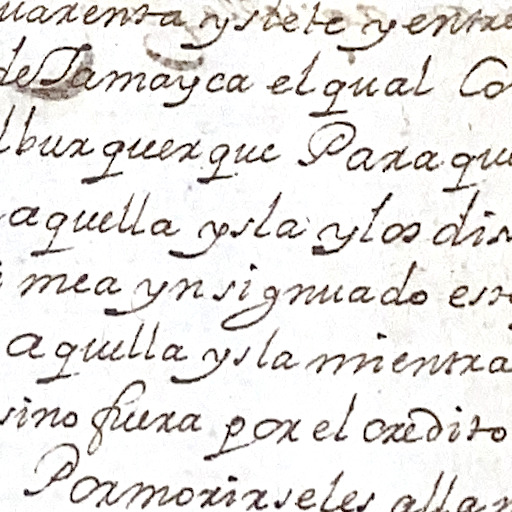 uarenta y siete y entre
de Jamayca el qual Co
lburquerque Para que
aquella ysla y los dis
mea ynsignuado est
aquella ysla mientra
sino fuera por el credito
Pormorirseles allan